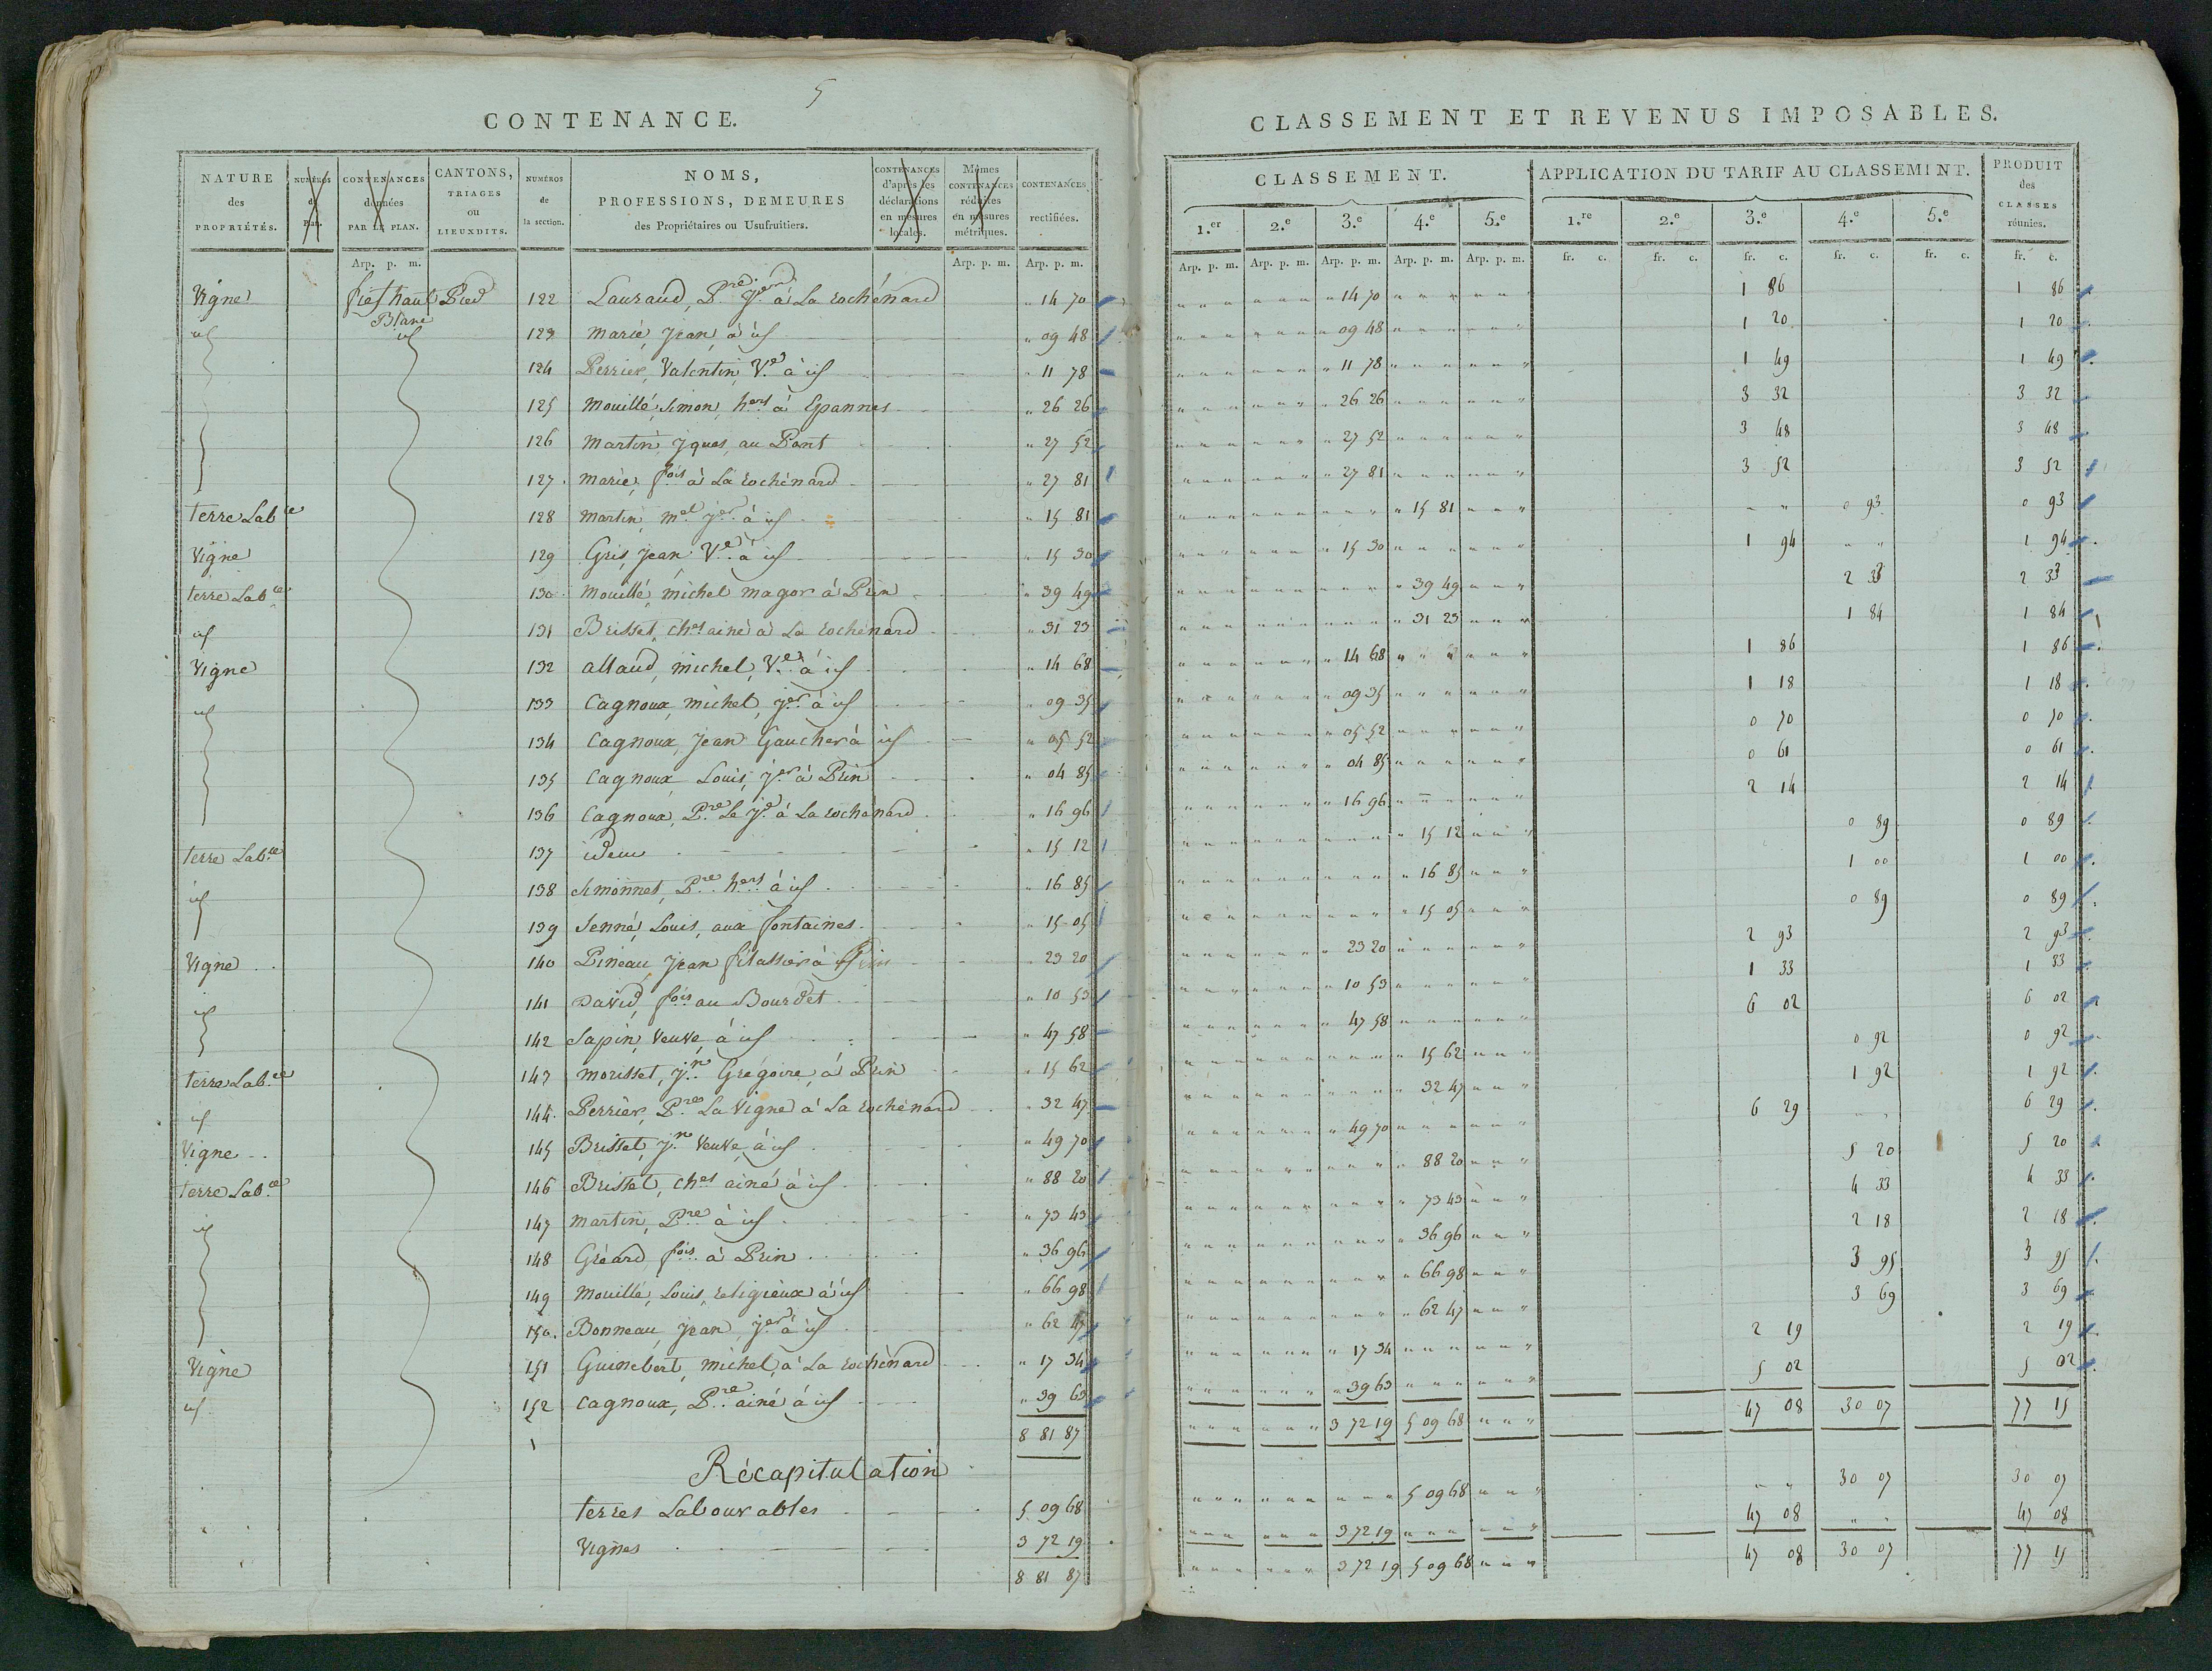 5
CONTENANCE.
NATURE des PROPRIÉTÉS. NUMÉROS du Plan. CONTENANCES données PAR LE PLAN. CANTONS, TRIAGES ou LIEUXDITS. NUMÉROS de la section. NOMS, PROFESSIONS, DEMEURES des Propriétaires ou Usufruitiers. CONTENANCES d'après les déclarations en mesures locales. Mêmes CONTENANCES réduites en mesures métriques. CONTENANCES rectifiées.
Arp. p. m. Arp. p. m. Arp. p. m.
Vigne fief haut Pied Blanc 122 Lauraud, Pre à La rochénard " 14 70
id id 123 Marié, Jean, à id " 09 48
124 Perrier, Valentin, Ve à id " 11 78
125 Mouillé Simon, hers à Epannes " 26 26
126 Martin Jques, au Pont " 27 52
127 Marié, fois à La rochénard " 27 81
terre Lable 128 Martin, mel jer à id " 15 81
Vigne 129 Gris, Jean Ve à id " 15 30
terre Labe 130 Mouillé, michel magor à Prin " 39 49
id 131 Brisset, chs ainé à La rochénard " 31 23
Vigne 132 allaud, michel, Ve à id " 14 68
id 133 Cagnoux, michel, jer à id " 09 35
134 Cagnoux, Jean Gaucher à id " 05 52
135 Cagnoux Louis, jer à Prin " 04 85
136 Cagnoux, Pre Le Je à La rochénard " 16 96
terre Labe 137 idem " 15 12
id 138 Simonnet, Pre hers à id " 16 85
139 Senné, Louis, aux fontaines " 15 05
Vigne 140 Pineau, Jean filassier à Prin " 23 20
id 141 David, fois au Bourdet " 10 53
142 Sapin, veuve, à id " 47 58
terre Labe 143 Morisset, Jn Grégoire, à Prin " 15 62
id 144. Perrier, Pre La Vigne à La rochénard " 32 47
Vigne 145 Brisset, Jn veuve, à id " 49 70
terre Labe 146 Brisset, chs ainé à id " 88 20
id 147 Martin, Pre à id " 73 43
148 Gréard, fois à Prin " 36 96
149 Mouillé, Louis, religieux à id " 66 98
150. Bonneau, Jean, jer à id " 62 47
Vigne 151 Guinebert, michel, à La rochénard " 17 34
id 152 Cagnoux, Pre ainé à id " 39 63
8 81 87
Récapitulation
terres Labourables 5 09 68
Vignes 3 72 19
8 81 87
CLASSEMENT ET REVENUS IMPOSABLES.
CLASSEMENT. APPLICATION DU TARIF AU CLASSEMENT. PRODUIT des CLASSES réunies.
1.er 2.e 3.e 4.e 5.e 1.re 2.e 3.e 4.e 5.e
Arp. p. m. Arp. p. m. Arp. p. m. Arp. p. m. Arp. p. m. fr. c. fr. c. fr. c. fr. c. fr. c. fr. c.
" 14 70 1 86 1 86
" 09 48 1 20 1 20
" 11 78 1 49 1 49
" 26 26 3 32 3 32
" 27 52 3 48 3 48
" 27 81 3 52 3 52
" 15 81 " " 0 93 0 93
" 15 30 1 94 " " 1 94
" 39 49 2 33 2 33
" 31 23 1 84 1 84
" 14 68 1 86 1 86
" 09 35 1 18 1 18
" 05 52 0 70 0 70
" 04 85 0 61 0 61
" 16 96 2 14 2 14
" 15 12 0 89 0 89
" 16 85 1 00 1 00
" 15 05 0 89 0 89
" 23 20 2 93 2 93
" 10 53 1 33 1 33
" 47 58 6 02 6 02
" 15 62 0 92 0 92
" 32 47 1 92 1 92
" 49 70 6 29 " " 6 29
" 88 20 5 20 5 20
" 73 43 4 33 4 33
" 36 96 2 18 2 18
" 66 98 3 95 3 95
" 62 47 3 69 3 69
" 17 34 2 19 2 19
" 39 63 5 02 5 02
3 72 19 5 09 68 47 08 30 07 77 15
5 09 68 " " 30 07 30 07
3 72 19 47 08 " " 47 08
3 72 19 5 09 68 47 08 30 07 77 15